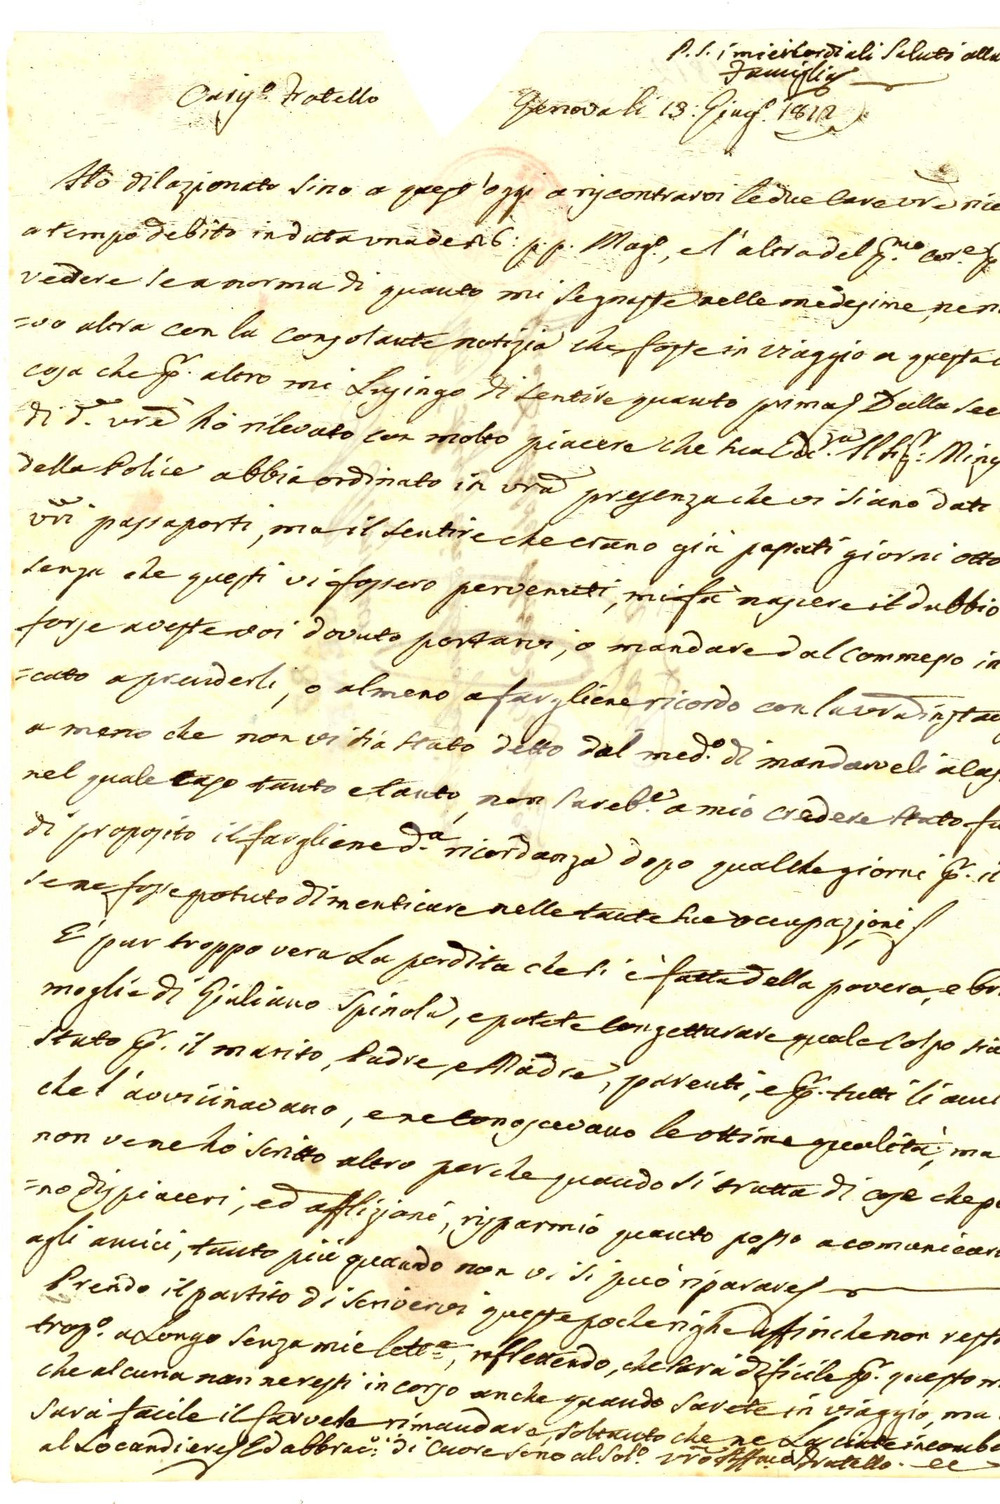 P. S. i miei cordiali Saluti alla
Famiglia
Cariss.o Fratello
Genova li 13: Giug.o 1812
Hò dilazionato sino a quest'oggi a riscontrarvi le due care vr̃e
a tempo debito in data una de 26: p. p. Mag.o, e l'altra del p.mo cor.e
vedere se a norma di quanto mi segnaste nelle medesime, ne
=vo altra con la consolante notizia che foste in viaggio a questa
cosa che p. altro mi Lusingo di sentire quanto prima / Dalla
di d.e vr̃e hò rilevato con molto piacere che Il Sig.r
della Police abbia ordinato in vr̃a presenza che vi siano dati
vr̃i passaporti, ma il sentire che erano già passati giorni otto
senza che questi vi fossero pervenuti, mi fà nascere il dubbio
forse aveste voi dovuto portarvi, o mandare dal Commesso in
=cato a prenderli, o almeno a fargliene ricordo con la vr̃a
a meno che non vi sia stato detto dal med.o di mandarveli a
nel quale caso tanto e tanto, non sareb.e a mio credere stato
di proposito il fargliene d.a ricordanza dopo qualche giorni p.
se ne fosse potuto dimenticare nelle tante sue occupazioni /
E' pur troppo vera La perdita che si è fatta della povera, e
moglie di Giuliano Spinola, e potete congetturare quale Colpo sia
stato p. il marito, Padre, e Madre, parenti, e p. tutti li
che l'avvicinavano, e ne conoscevano le ottime qualità, ma
non ve ne hò scritto altro perche quando si tratta di cose che
=no dispiaceri, ed afflizioni, risparmio quanto posso a comunicar
agli amici, tanto più quando non vi si può riparare /
Prendo il partito di scrivervi queste poche righe affinche non
trop.o a Lungo senza mie lett.e, riflettendo, che sarà dificile p. questo
che alcuna non ne resti in corso anche quando sarete in viaggio, ma
sarà facile il farvele rimandare, soltanto che ne Lasciate
al Locandiere / Ed abbrac.i di Cuore sono al Sol.o vr̃o Aff.mo Fratello